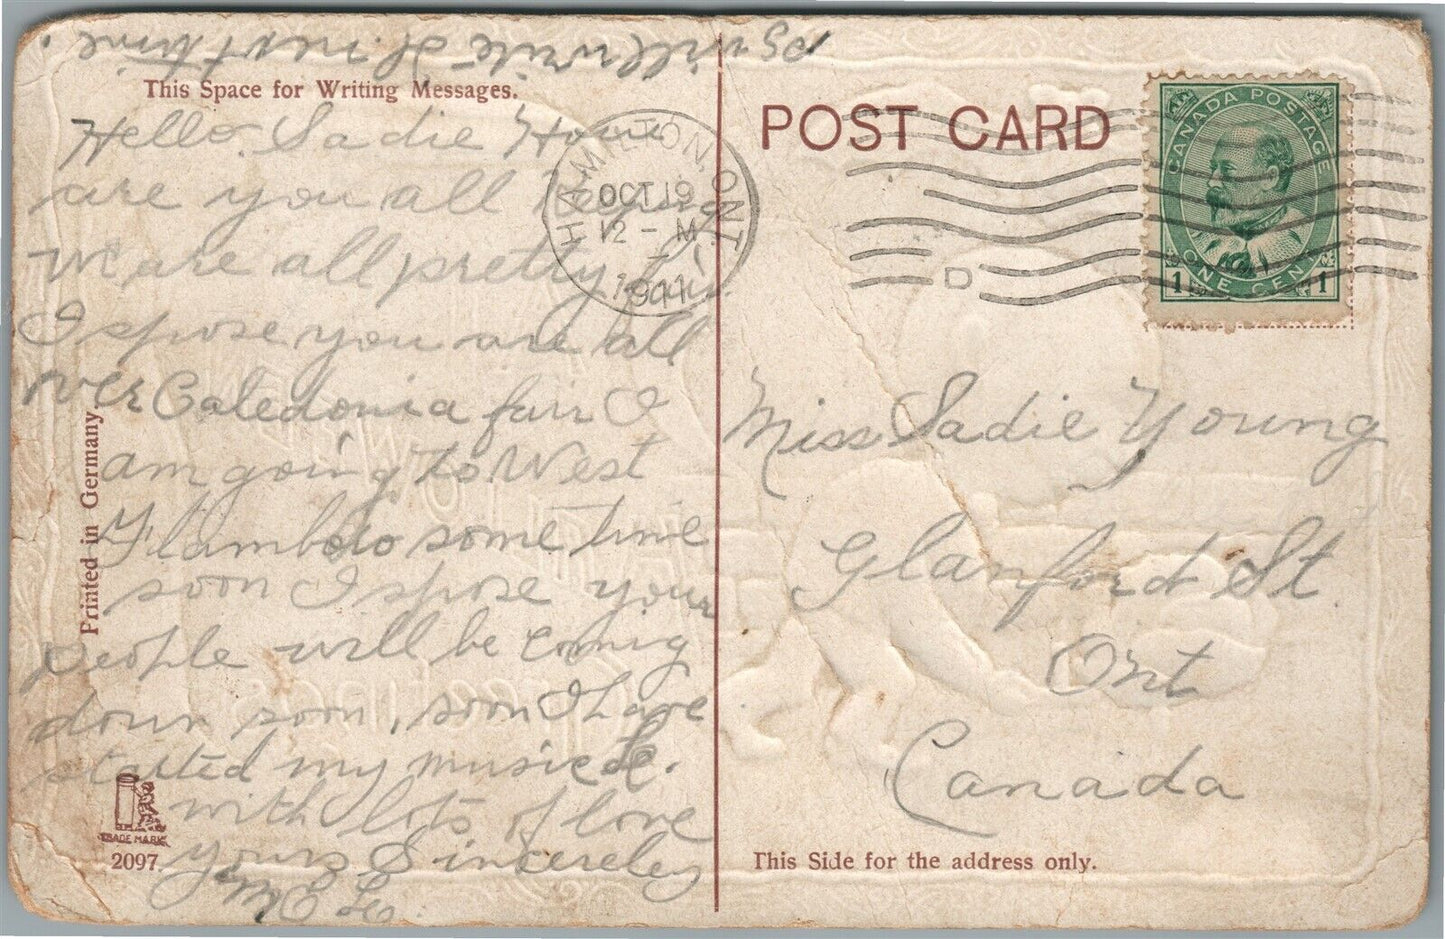 PS will write H. next time.
This Space for Writing Messages.
Hello Sadie How
are you all keeping
we are all pretty
I spose you are all
over Caledonia fair I
am going to West
Flamboro some time
soon I spose your
people will be comig
down soon, soon I have
started my music
with lots of love
yours Sincereley
M E
Printed in Germany
TRADE MARK
2097.
HAMILTON, ONT.
OCT 19
12 - M
1911
D
POST CARD
CANADA POSTAGE
1 ONE CENT 1
Miss Sadie Young
Glanford St.
Ont
Canada
This Side for the address only.